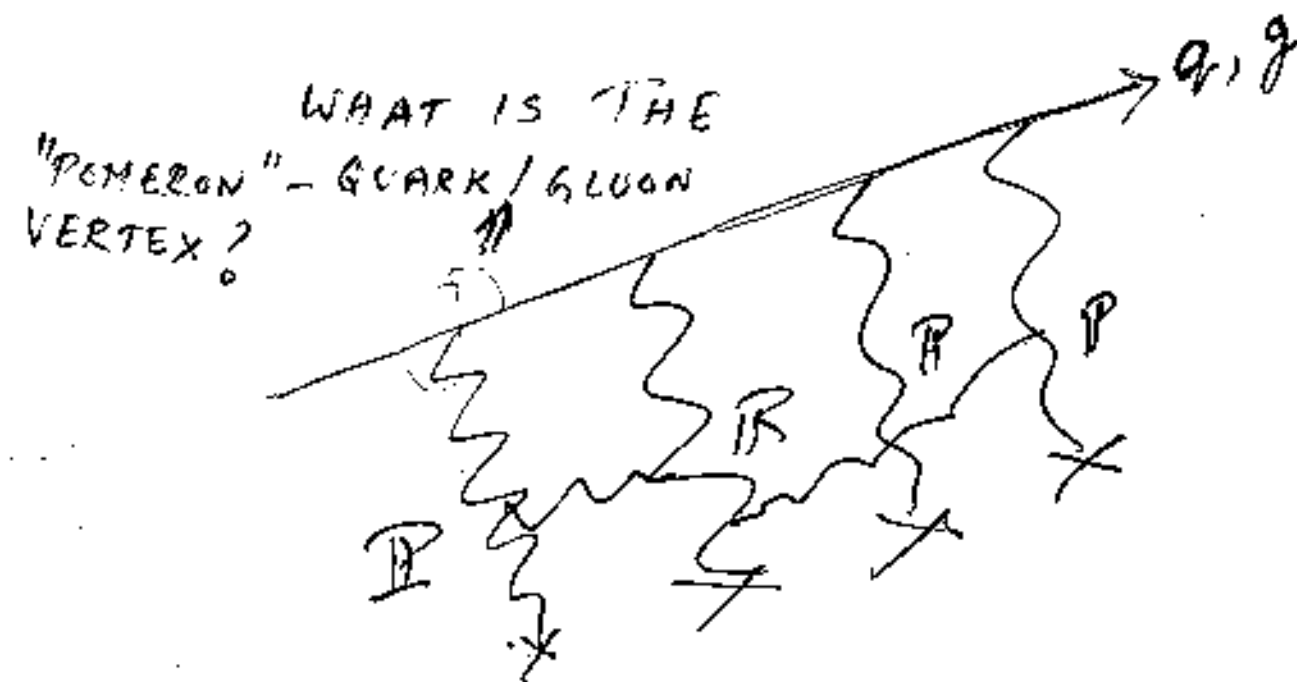 q, g
WHAT IS THE
"POMERON" - QUARK / GLUON
VERTEX?
P
P